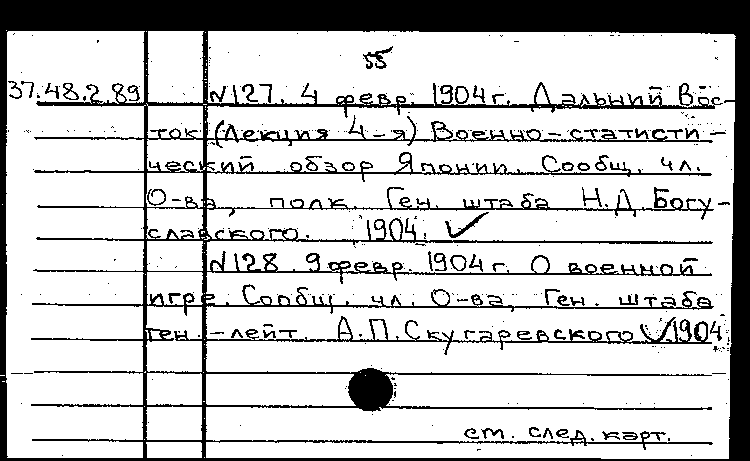 55
37.48.2.89 №127. 4 февр. 1904 г. Дальний Вос-
ток (Лекция 4-я) Военно-статисти-
ческий обзор Японии. Сообщ. чл.
О-ва, полк. Ген. штаба Н.Д. Богу-
славского. 1904. ✓
№128. 9 февр. 1904 г. О военной
игре. Сообщ. чл. О-ва, Ген. штаба
ген.-лейт. А.П. Скугаревского ✓ 1904
см. след. карт.